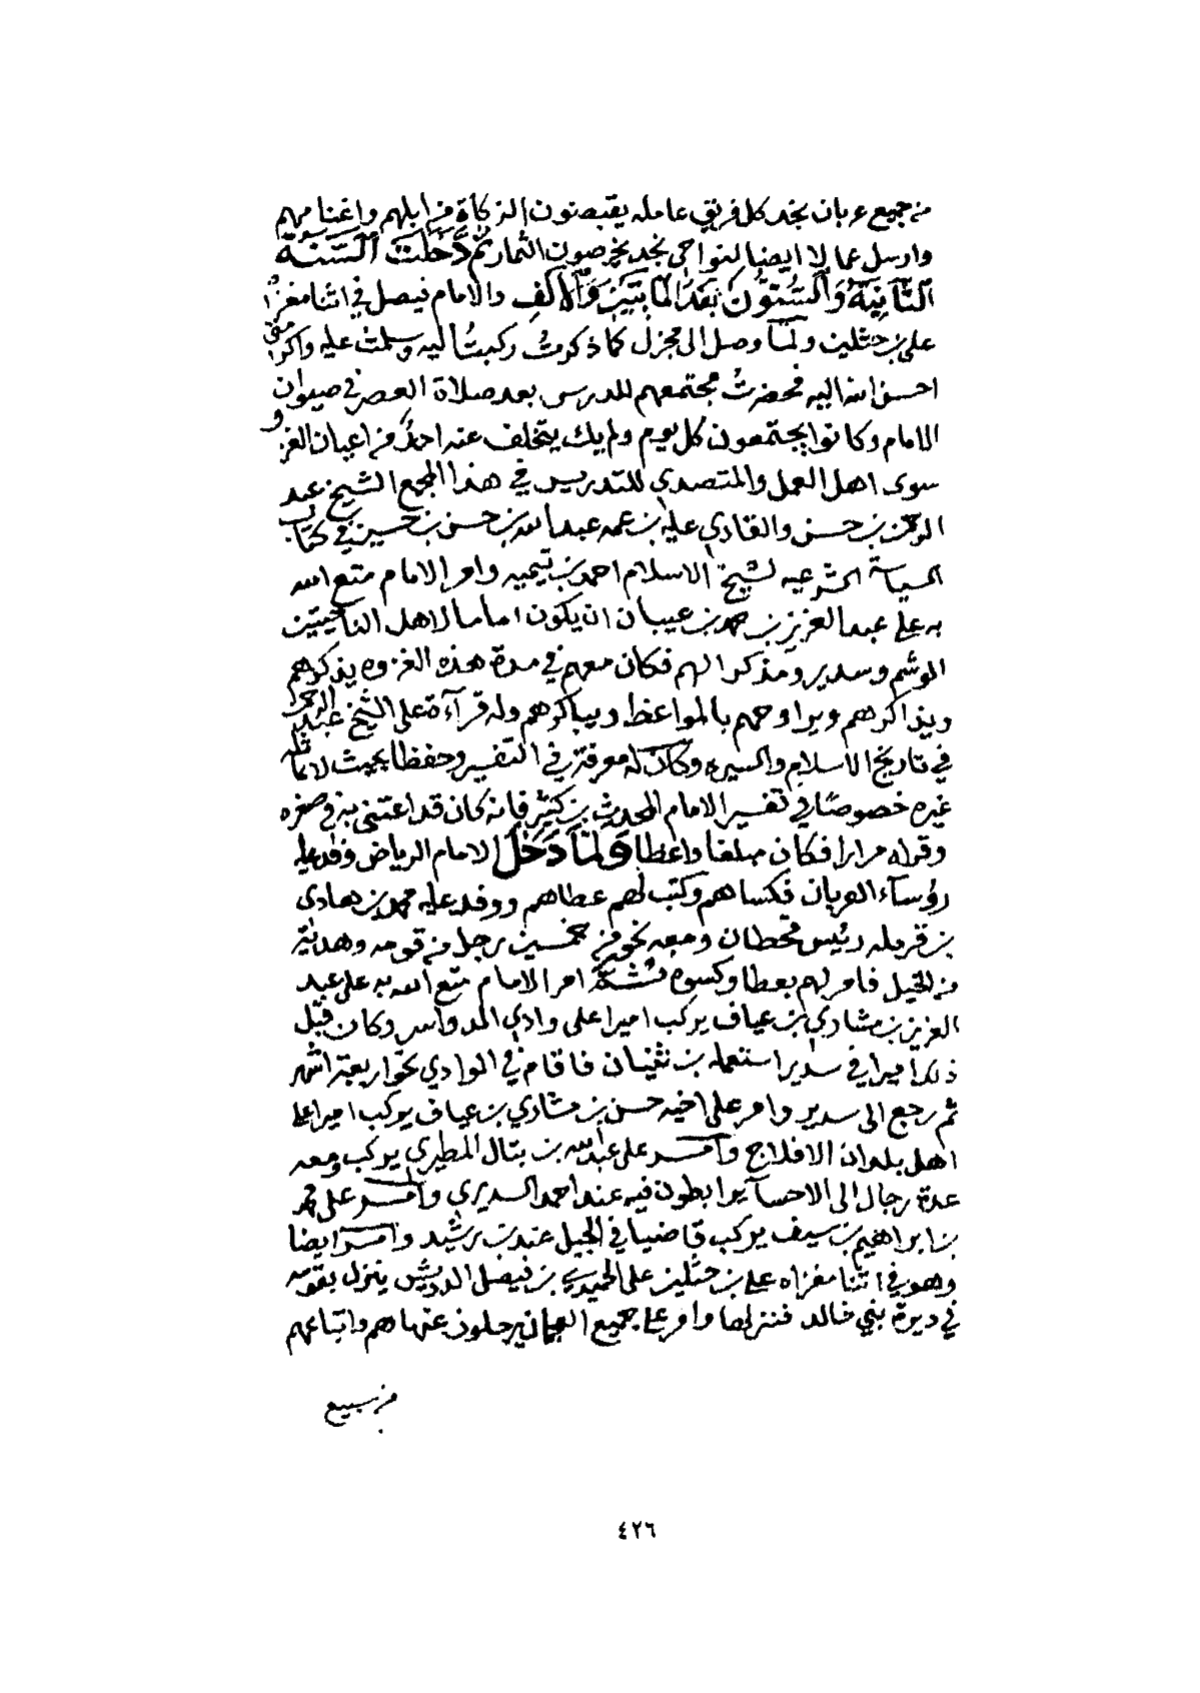 من جميع عربان نجد كل فريق عامله يقبضون الزكاة من ابلهم واغنامهم
وارسل عمالا ايضا لنواحي نجد يخرصون الثمار ثُمَّ دَخَلَتْ السَّنَةُ
الثَّانِيَةُ وَالسِّتُّونَ بَعْدَ المَاتَيْنِ وَالْأَلْفِ والامام فيصل في اثنا مغزاه
على بن حثلين ولما وصل الى مجزل كما ذكرت ركبتُ اليه وسلمت عليه واكرمني
احسن الله اليه فحضرتُ مجتمعهم للدرس بعد صلاة العصر في صيوان
الامام وكانوا يجتمعون كل يوم ولم يك يتخلف عنه احدٌ من اعيان الغزو
سوى اهل العمل والمتصدى للتدريس في هذا المجمع الشيخ عبد
الرحمن بن حسن والقاري عليه بن عمه عبد الله بن حسن بن حسين في كتاب
السياسة الشرعيه لشيخ الاسلام احمد بن تيميه وامر الامام متع الله
به على عبد العزيز بن حمد بن عيبان ان يكون اماما لاهل الناحيتين
الوشم وسدير ومذكرا لهم فكان معهم في مدة هذه الغزوه يذكرهم
ويذاكرهم ويراوحهم بالمواعظ ويباكرهم وله قرآءة على الشيخ عبد الرحمن
في تاريخ الاسلام والسيره وكان له معرفة في التفسير وحفظا بحيث لا يماثله
غيره خصوصًا في تفسير الامام المحدث بن كثير فانه كان قد اعتنى به في صغره
وقراه مرارا فكان مبلغا واعظا وَلَمَّا دَخَلَ الامام الرياض وفد عليه
رؤسآء العربان فكساهم وكتب لهم عطاهم ووفد عليه محمد بن هادى
بن قرمله رئيس قحطان ومعه نحو من خمسين رجل من قومه وهدية
من الخيل فامر لهم بعطا وكسوه ثُمَّ امر الامام متع الله به على عبد
العزيز بن مشاري بن عياف يركب اميرا على وادي الدواسر وكان قبل
ذلك اميرا في سدير استعمله بن ثنيان فاقام في الوادي نحو اربعة اشهر
ثم رجع الى سدير وامر على اخيه حسن بن مشاري بن عياف يركب اميرا على
اهل بلدان الافلاج وامر على عبد الله بن بتال المطيري يركب ومعه
عدة رجال الى الاحسآ يرابطون فيه عند احمد السديري وامر على محمد
بن ابراهيم بن سيف يركب قاضيا في الجبل عند بن رشيد وامر ايضا
وهو في اثنا مغزاه على بن حثلين على الحميدي بن فيصل الدويش ينزل بقومه
في ديرة بني خالد فنزلها وامر على جميع العجمان يرحلون عنها هم واتباعهم
من سبيع
٤٢٦